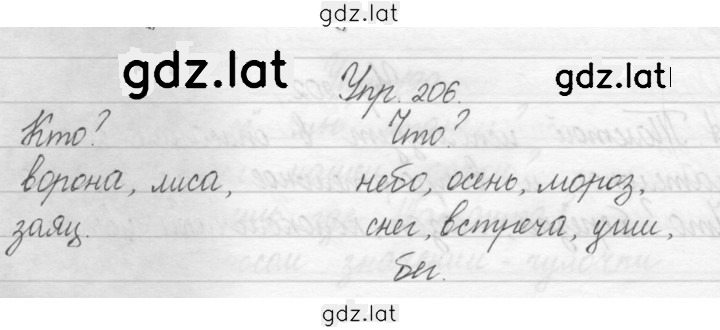 gdz.lat
gdz.lat gdz.lat
Упр. 206.
Кто? Что?
ворона, лиса, небо, осень, мороз,
заяц. снег, встреча, уши,
бег.
gdz.lat